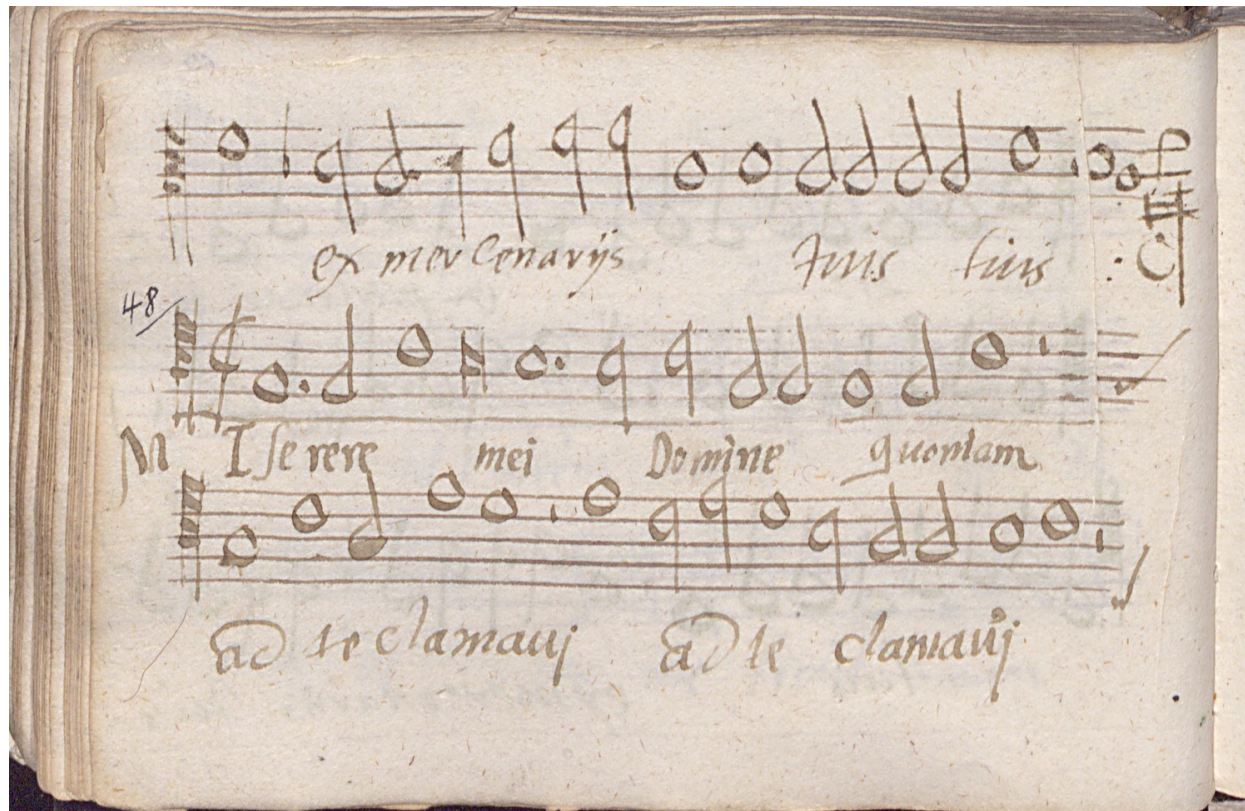 ex mercenarijs tuis tuis
48
MIserere mei Domine quoniam
ad te clamauj ad te clamauj